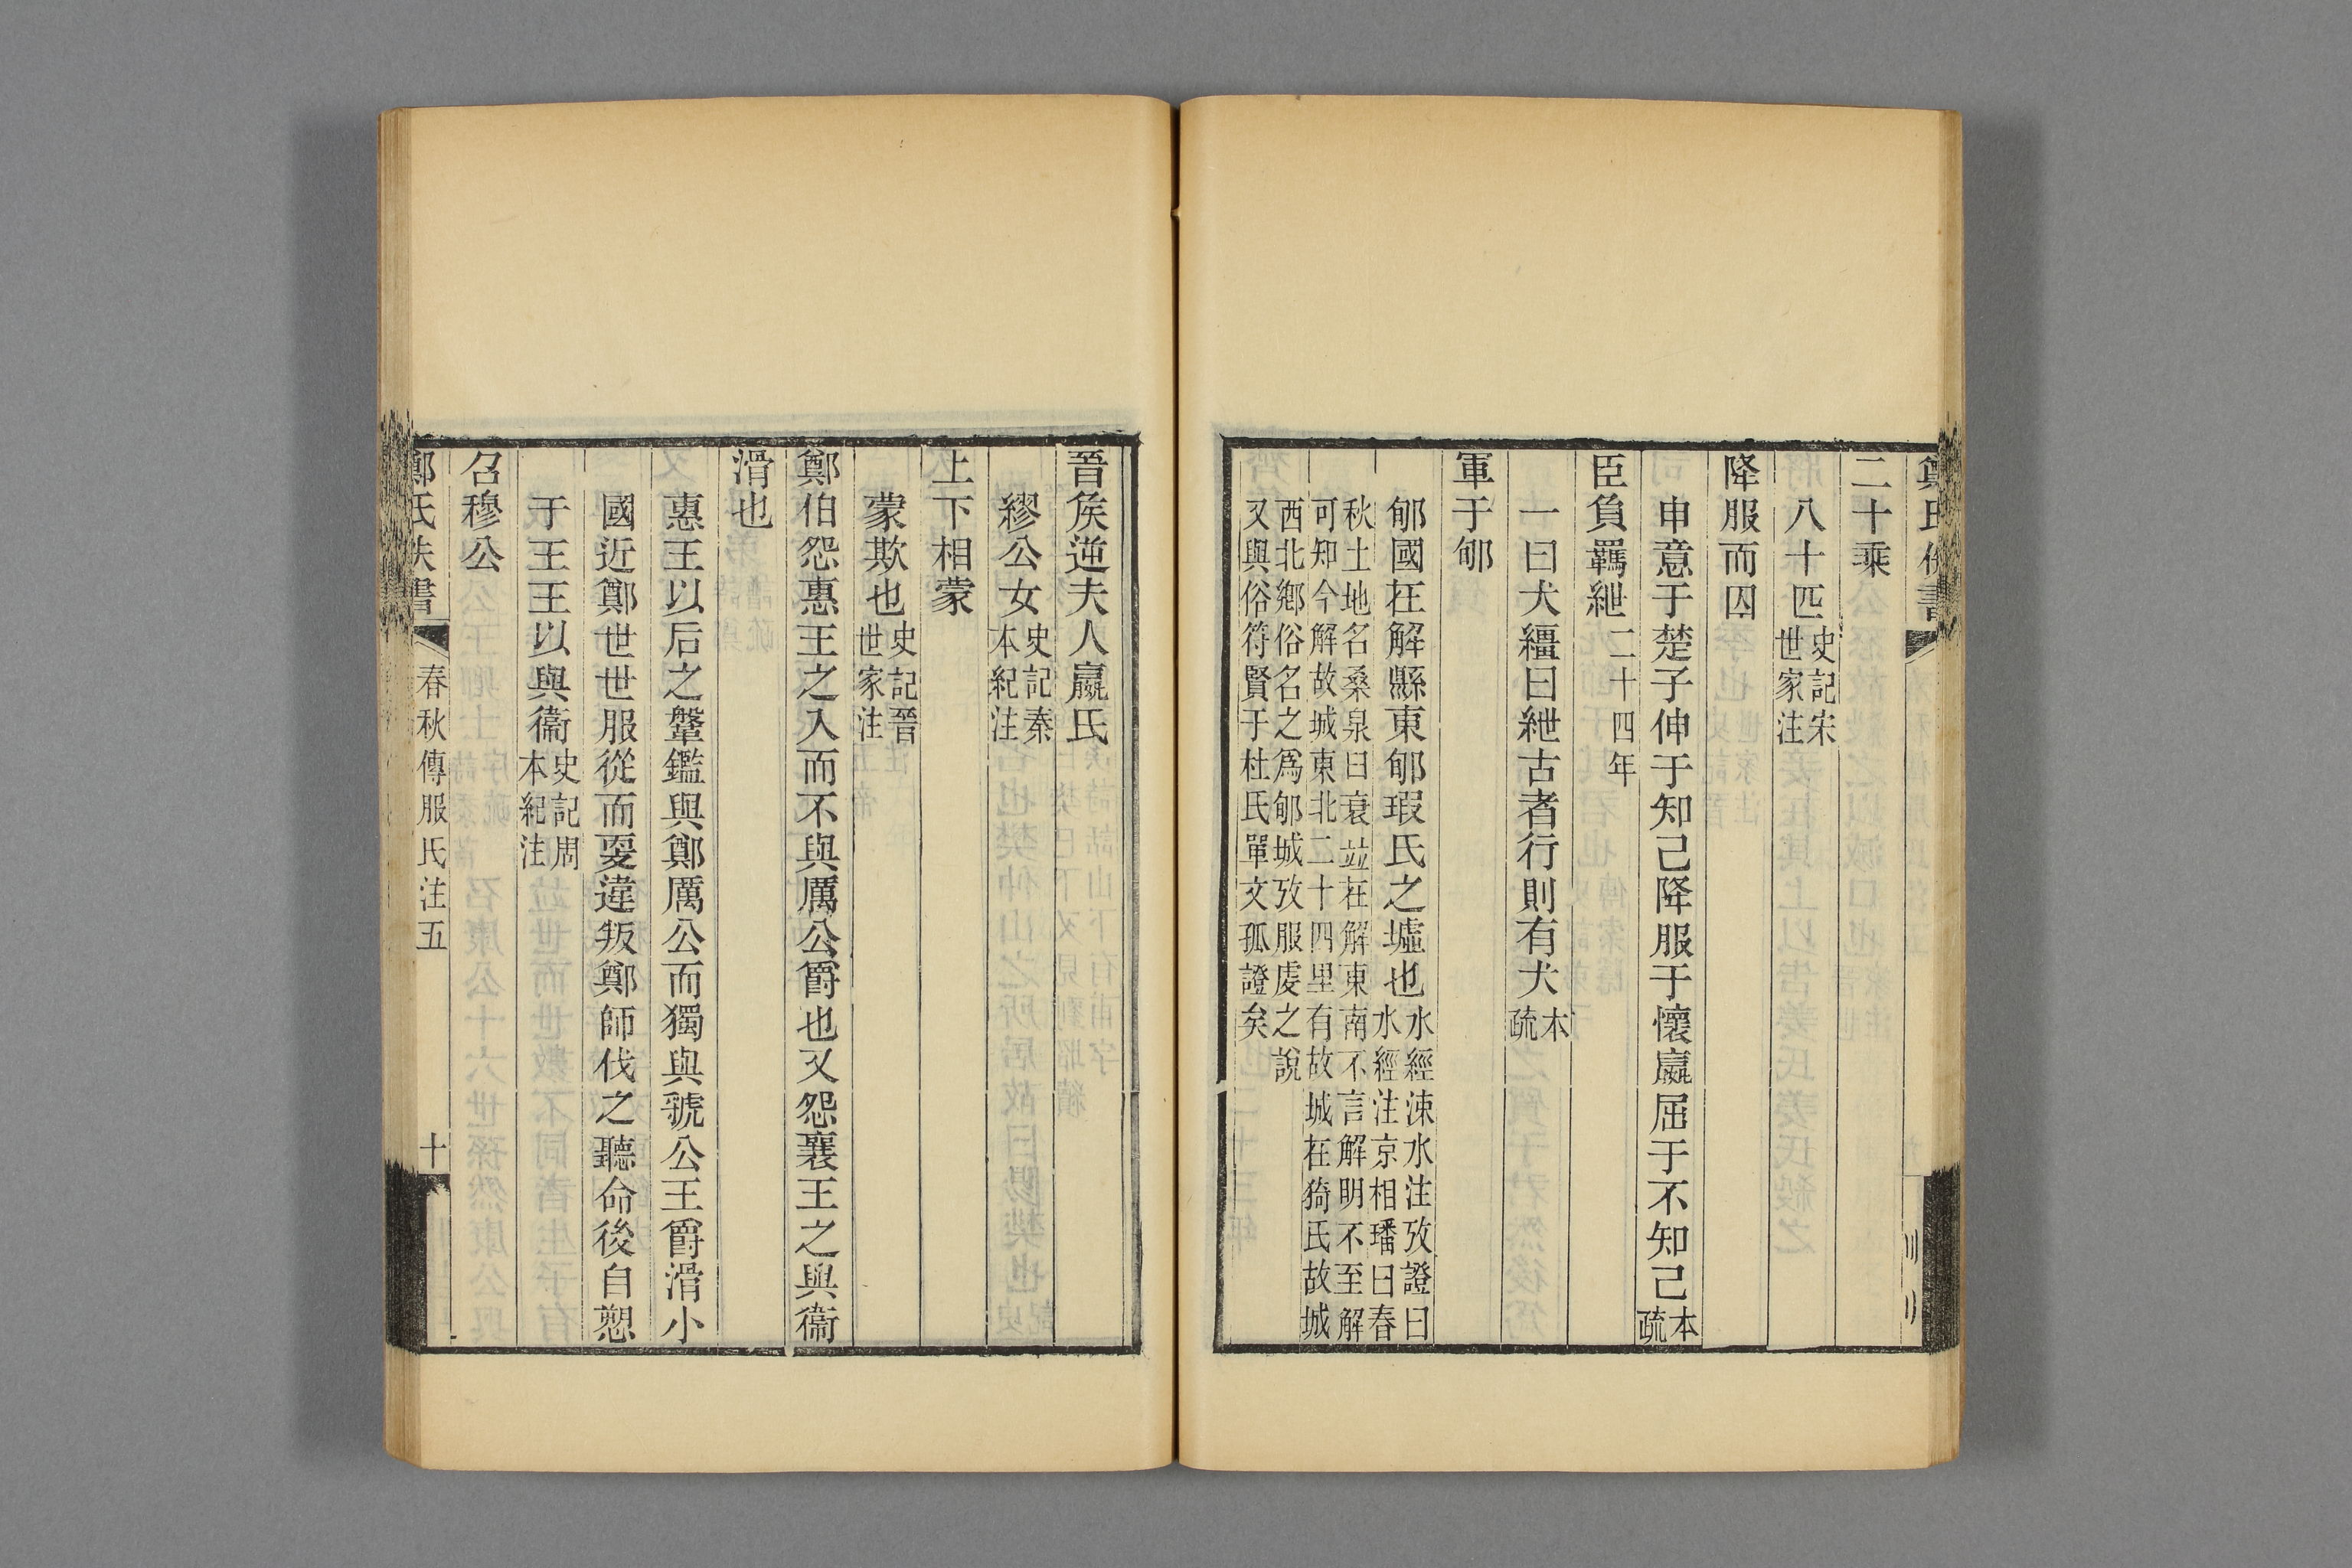 二十乘
八十匹史記宋世家注
降服而囚
申意于楚子伸于知己降服于懷嬴屈于不知己本疏
臣負羈紲二十四年
一曰犬繮曰紲古者行則有犬本疏
軍于郇
郇國在解縣東郇瑕氏之墟也水經涑水注攷證曰水經注京相璠曰春
秋土地名桑泉臼衰並在解東南不言解明不至解可知今解故城東北二十四里有故城在猗氏故城
西北鄉俗名之爲郇城攷服虔之說又與俗符賢于杜氏單文孤證矣
晉矦逆夫人嬴氏
繆公女史記秦本紀注
上下相蒙
蒙欺也史記晉世家注
鄭伯怨惠王之入而不與厲公爵也又怨襄王之與衞
滑也
惠王以后之鞶鑑與鄭厲公而獨與虢公王爵滑小
國近鄭世世服從而更違叛鄭師伐之聽命後自愬
于王王以與衞史記周本紀注
召穆公
鄭氏佚書 春秋傳服氏注五 十